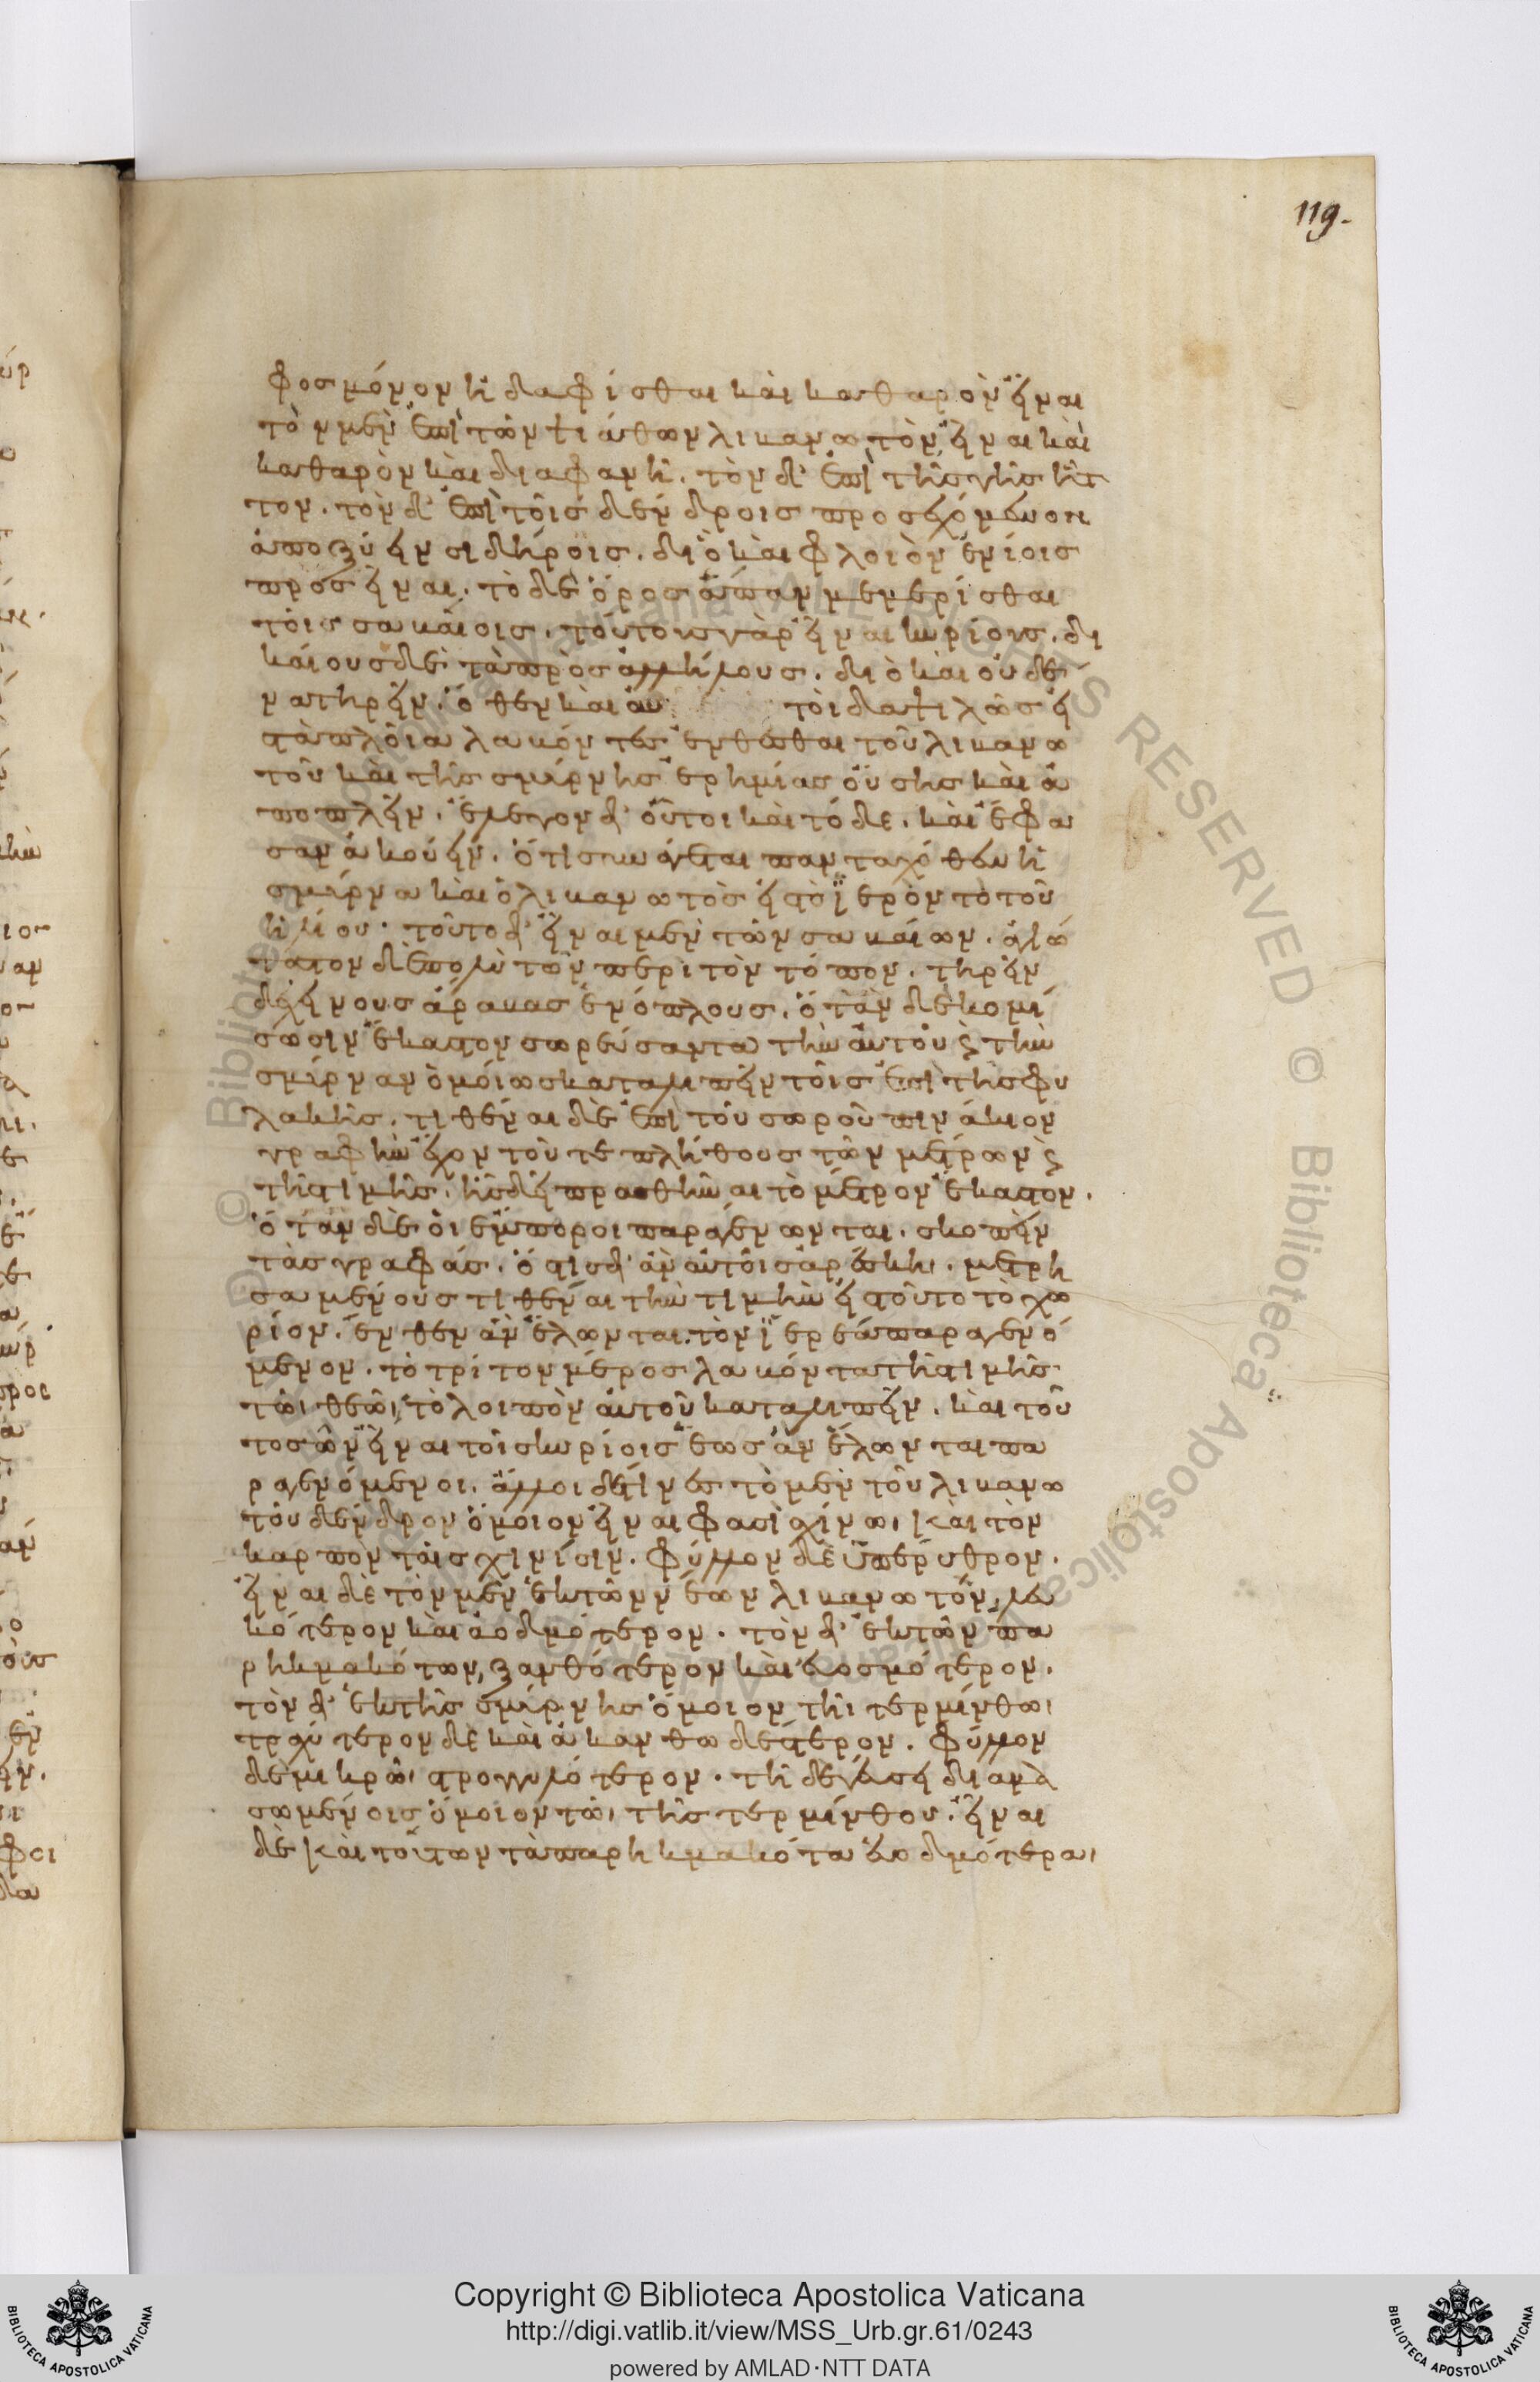 119.
φος μόνον ἠδαφίσθαι καὶ καθαρὸν εἶναι
τὸν μὲν ἐπὶ τῶν ψιάθων λιβανωτὸν εἶναι καὶ
καθαρὸν καὶ διαφανῆ. τὸν δ' ἐπὶ τῆς γῆς ἧτ
τον. τὸν δ' ἐπὶ τοῖς δένδροις προσεχόμενον
ἀποξύειν σιδήροις. διὸ καὶ φλοιὸν ἐνίοις
προσεῖναι. τὸ δὲ ὄρος ἅπαν μεμερίσθαι
τοῖς σαβαίοις. τούτους γὰρ εἶναι κυρίους. δι
καίους δὲ τὰ πρὸς ἀλλήλους. διὸ καὶ οὐδέ
να τηρεῖν. ὅθεν καὶ αὐ τοὶ δαψιλῶς εἰ
στὰ πλοῖα λαβόντες ἐνθέσθαι τοῦ λιβανω
τοῦ καὶ τῆς σμύρνης ἐρημίας οὔσης καὶ ἀ
ποπλεῖν. ἔλεγον δ' οὗτοι καὶ τόδε. καὶ ἔφα
σαν ἀκούειν. ὅτι συνάγεται πανταχόθεν ἡ
σμύρνα καὶ ὁ λιβανωτὸς εἰς τὸ ἱερὸν τὸ τοῦ
ἡλίου. τοῦτο δ' εἶναι μὲν τῶν σαβαίων. ἁγιώ
τατον δὲ πολὺ τῶν περὶ τὸν τόπον. τηρεῖν
ἄραβας ἐνόπλους. ὅταν δὲ κομί
σωσιν ἕκαστον σωρεύσαντα τὴν αὐτοῦ καὶ τὴν
σμύρναν ὁμοίως καταλιπεῖν τοῖς ἐπὶ τῆς φυ
λακῆς. τιθέναι δὲ ἐπὶ τοῦ σωροῦ πινάκιον
γραφὴν ἔχον τοῦ τε πλήθους τῶν μέτρων καὶ
τῆς τιμῆς. ἧς δεῖ πραθῆναι τὸ μέτρον ἕκαστον.
ὅταν δὲ οἱ ἔμποροι παραγένωνται. σκοπεῖν
τὰς γραφάς. ὅστις δ' ἂν αὐτοῖς ἀρέσκηι. μετρη
σαμένους τιθέναι τὴν τιμὴν εἰς τοῦτο τὸ χω
ρίον. ἔνθεν ἂν ἕλωνται. τὸν ἱερέα παραγενό
μενον. τὸ τρίτον μέρος λαβόντα τῆς τιμῆς
τῶι θεῶι, τὸ λοιπὸν αὐτοῦ καταλιπεῖν. καὶ τοῦ
το σῶν εἶναι τοῖς κυρίοις ἕως ἂν ἕλωνται πα
ραγενόμενοι. ἄλλοι δέ τινες τὸ μὲν τοῦ λιβανω
τοῦ δένδρον ὅμοιον εἶναι φασὶ σχίνωι καὶ τὸν
καρπὸν ταῖς σχινίσιν. φύλλον δὲ ὑπέρυθρον.
εἶναι δὲ τὸν μὲν ἐκ τῶν νέων λιβανωτὸν, λευ
κότερον καὶ ἀοδμότερον. τὸν δ' ἐκ τῶν πα
ρηκμακότων, ξανθότερον καὶ εὐοσμότερον.
τὸν δ' ἐκ τῆς σμύρνης ὅμοιον τῆι τερμίνθωι
τραχύτερον δὲ καὶ ἀκανθωδέστερον. φύλλον
δὲ μικρῶι στρογγυλότερον. τῆ δὲ γεύσει διαμα
σωμένοις ὅμοιον τῶι τῆς τερμίνθου. εἶναι
δὲ καὶ τούτων τὰ παρηκμακότα εὐοδμότερα
Copyright © Biblioteca Apostolica Vaticana
http://digi.vatlib.it/view/MSS_Urb.gr.61/0243
powered by AMLAD·NTT DATA
BIBLIOTECA APOSTOLICA VATICANA
BIBLIOTECA APOSTOLICA VATICANA